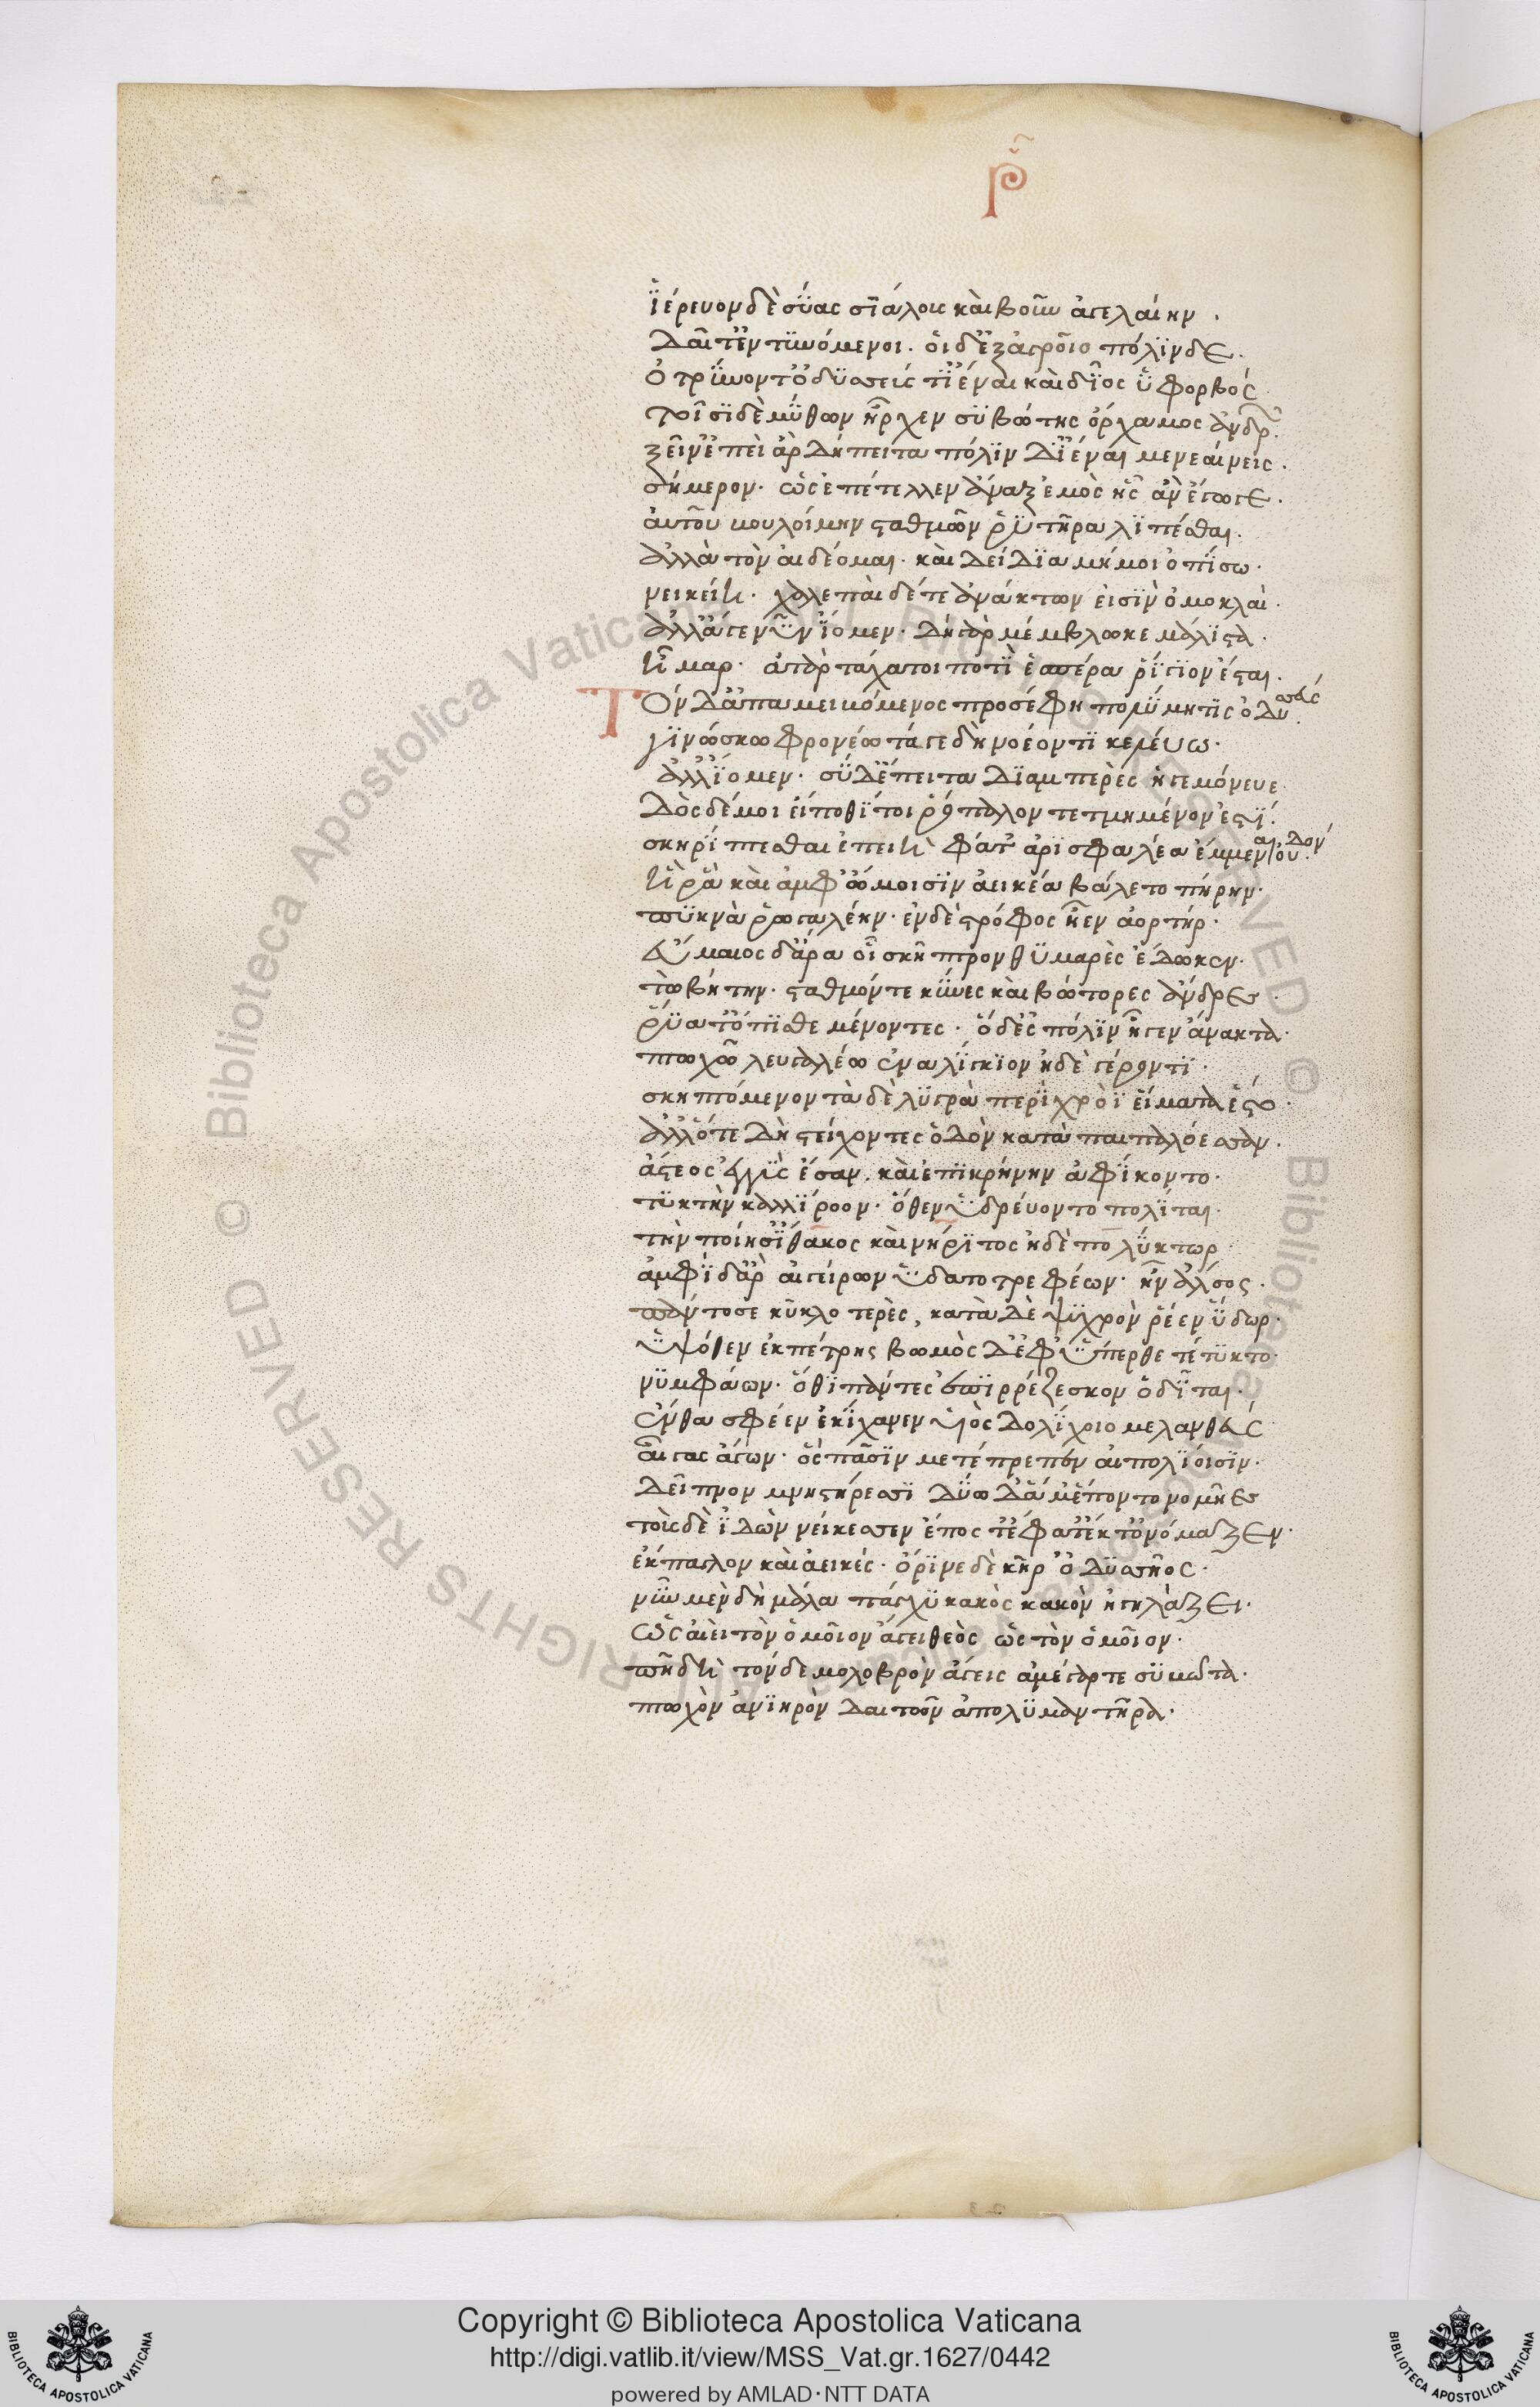 ρ̃
ἱέρευον δὲ σύας σιάλους καὶ βοῦν ἀγελαίην.
δαῖτ' ἐντυνόμενοι. οἱ δ' ἐξ ἀγροῖο πόλινδε.
ὀτρύνοντ' ὀδυσεύς τ' ἰέναι καὶ δῖος ὑφορβός
τοῖσι δὲ μύθων ἦρχεν συβώτης ὄρχαμος ἀνδρ.
ξεῖν' ἐπεὶ ἂρ δὴ ἔπειτα πόλιν δ' ἰέναι μενεαίνεις.
σήμερον. ὡς ἐπέτελλεν ἄναξ ἐμὸς ἦς ἂν ἔγωγε.
αὐτοῦ βουλοίμην σταθμῶν ῥυτῆρα λιπέσθαι.
ἀλλὰ τὸν αἰδέομαι. καὶ δείδια μή μοι ὀπίσω.
νεικείη. χαλεπαὶ δέ τε ἀνάκτων εἰσὶν ὁμοκλαὶ.
ἀλλ' ἄγε νῦν ἴομεν. δὴ γὰρ μέμβλωκε μάλιστα.
ἦμαρ. ἀτὰρ τάχα τοι ποτὶ ἑσπέρα ῥίγιον ἔσται.
Τὸν δ' ἀπαμειβόμενος προσέφη πολύμητις ὀδυσσεύς.
γινώσκω φρονέω τά γε δὴ νοέοντι κελεύεις.
ἀλλ' ἴομεν. σὺ δ' ἔπειτα διαμπερὲς ἡγεμόνευε
δὸς δέ μοι εἴ ποθί τοι ῥόπαλον τετμημένον ἐστί.
σκηρίπτεσθαι ἐπειὴ φάτ' ἀρισφαλέα ἔμμεναι οὐδόν
ἦ ῥα καὶ ἀμφ' ὤμοισιν ἀεικέα βάλετο πήρην.
πυκνὰ ῥωγαλέην. ἐν δὲ στρόφος ἦεν ἀορτήρ.
εὔμαιος δ' ἄρα οἱ σκῆπτρον θυμαρὲς ἔδωκεν.
τὼ βήτην. σταθμὸν τε κύνες καὶ βώτορες ἄνδρες.
ῥύατ' ὄπισθε μένοντες. ὁ δ' ἐς πόλιν ἦγεν ἄνακτα.
πτωχῷ λευγαλέω ἐναλίγκιον ἠδὲ γέροντι.
σκηπτόμενον τὰ δὲ λυγρὰ περὶ χροῒ εἵματα ἕστο.
ἀλλ' ὅτε δὴ στείχοντες ὁδὸν κατὰ παιπαλόεσσαν.
ἄστεος ἐγγὺς ἔσαν. καὶ ἐπὶ κρήνην ἀφίκοντο.
τυκτὴν καλλίροον. ὅθεν ὑδρεύοντο πολῖται.
τὴν ποίησ' ἴθακος καὶ νήριτος ἠδὲ πολύκτωρ
ἀμφὶ δ' ἂρ αἰγείρων ὑδατοτρεφέων. ἦν ἄλσος.
πάντοσε κυκλοτερὲς, κατὰ δὲ ψυχρὸν ῥέεν ὕδωρ.
ὑψόθεν ἐκ πέτρης βωμὸς δ' ἐφύπερθε τέτυκτο.
νυμφάων. ὅθι πάντες ἐπιρρέζεσκον ὁδῖται.
ἔνθα σφέεν ἐκίχανεν υἱὸς δολίχοιο μελανθεύς
αἶγας ἄγων. ὃς πᾶσιν μετέπρεπον αἰπολίοισιν.
δεῖπνον μνηστήρεσσι δύω δ' ἅμ' ἕποντο νομῆες
τοὺς δὲ ἰδὼν νείκεσσεν ἔπος τ' ἔφατ' ἔκ τ' ὀνόμαζεν.
ἔκπαγλον καὶ ἀεικές. ὄρινε δὲ κῆρ ὀδυσῆος.
νῦν μὲν δὴ μάλα πάγχυ κακὸς κακὸν ἡγηλάζει.
ὡς αἰεὶ τὸν ὁμοῖον ἄγει θεὸς ὡς τὸν ὁμοῖον.
πῆ δὴ τόνδε μολοβρὸν ἄγεις ἀμέγαρτε συβῶτα.
πτωχὸν ἀνιηρὸν δαιτῶν ἀπολυμαντῆρα.
Copyright © Biblioteca Apostolica Vaticana
http://digi.vatlib.it/view/MSS_Vat.gr.1627/0442
powered by AMLAD·NTT DATA